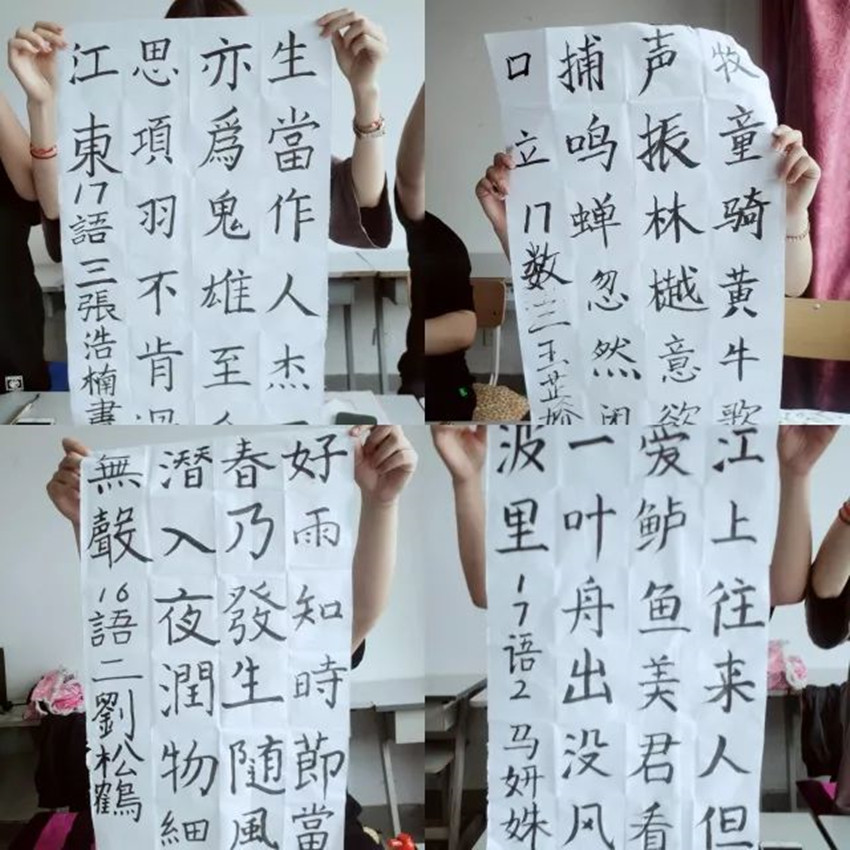 生當作人杰
亦爲鬼雄至
思項羽不肯過
江東
17語三張浩楠書
牧童骑黄牛歌
声振林樾意欲
捕鸣蝉忽然闭
口立
17数三王芷
好雨知時節當
春乃發生随風
潛入夜潤物細
無聲
16語二劉松鶴
江上往来人但
爱鲈鱼美君看
一叶舟出没风
波里
17语2马妍姝